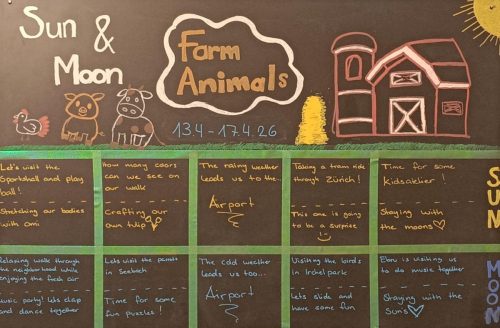 Sun &
Moon
Farm
Animals
13.4 - 17.4.26
Let's visit the
Sportshall and play
ball!
Stretching our bodies
with omi
How many colors
can we see on
our walk
Crafting our
own tulip
The rainy weather
leads us to the...
Airport
Taking a tram ride
through Zürich!
This one is going
to be a surprise
Time for some
kidsatelier!
Staying with
the moons
SUN
Relaxing walk through
the neighborhood while
enjoying the fresh air
Music party! Lets clap
and dance together
Lets visit the
in
Seebach
Time for some
fun puzzles!
The cold weather
leads us too...
Airport
Visiting the birds
in Irchelpark
Lets slide and
have some fun
is visiting us
to do music together
Staying with the
Suns
Moon